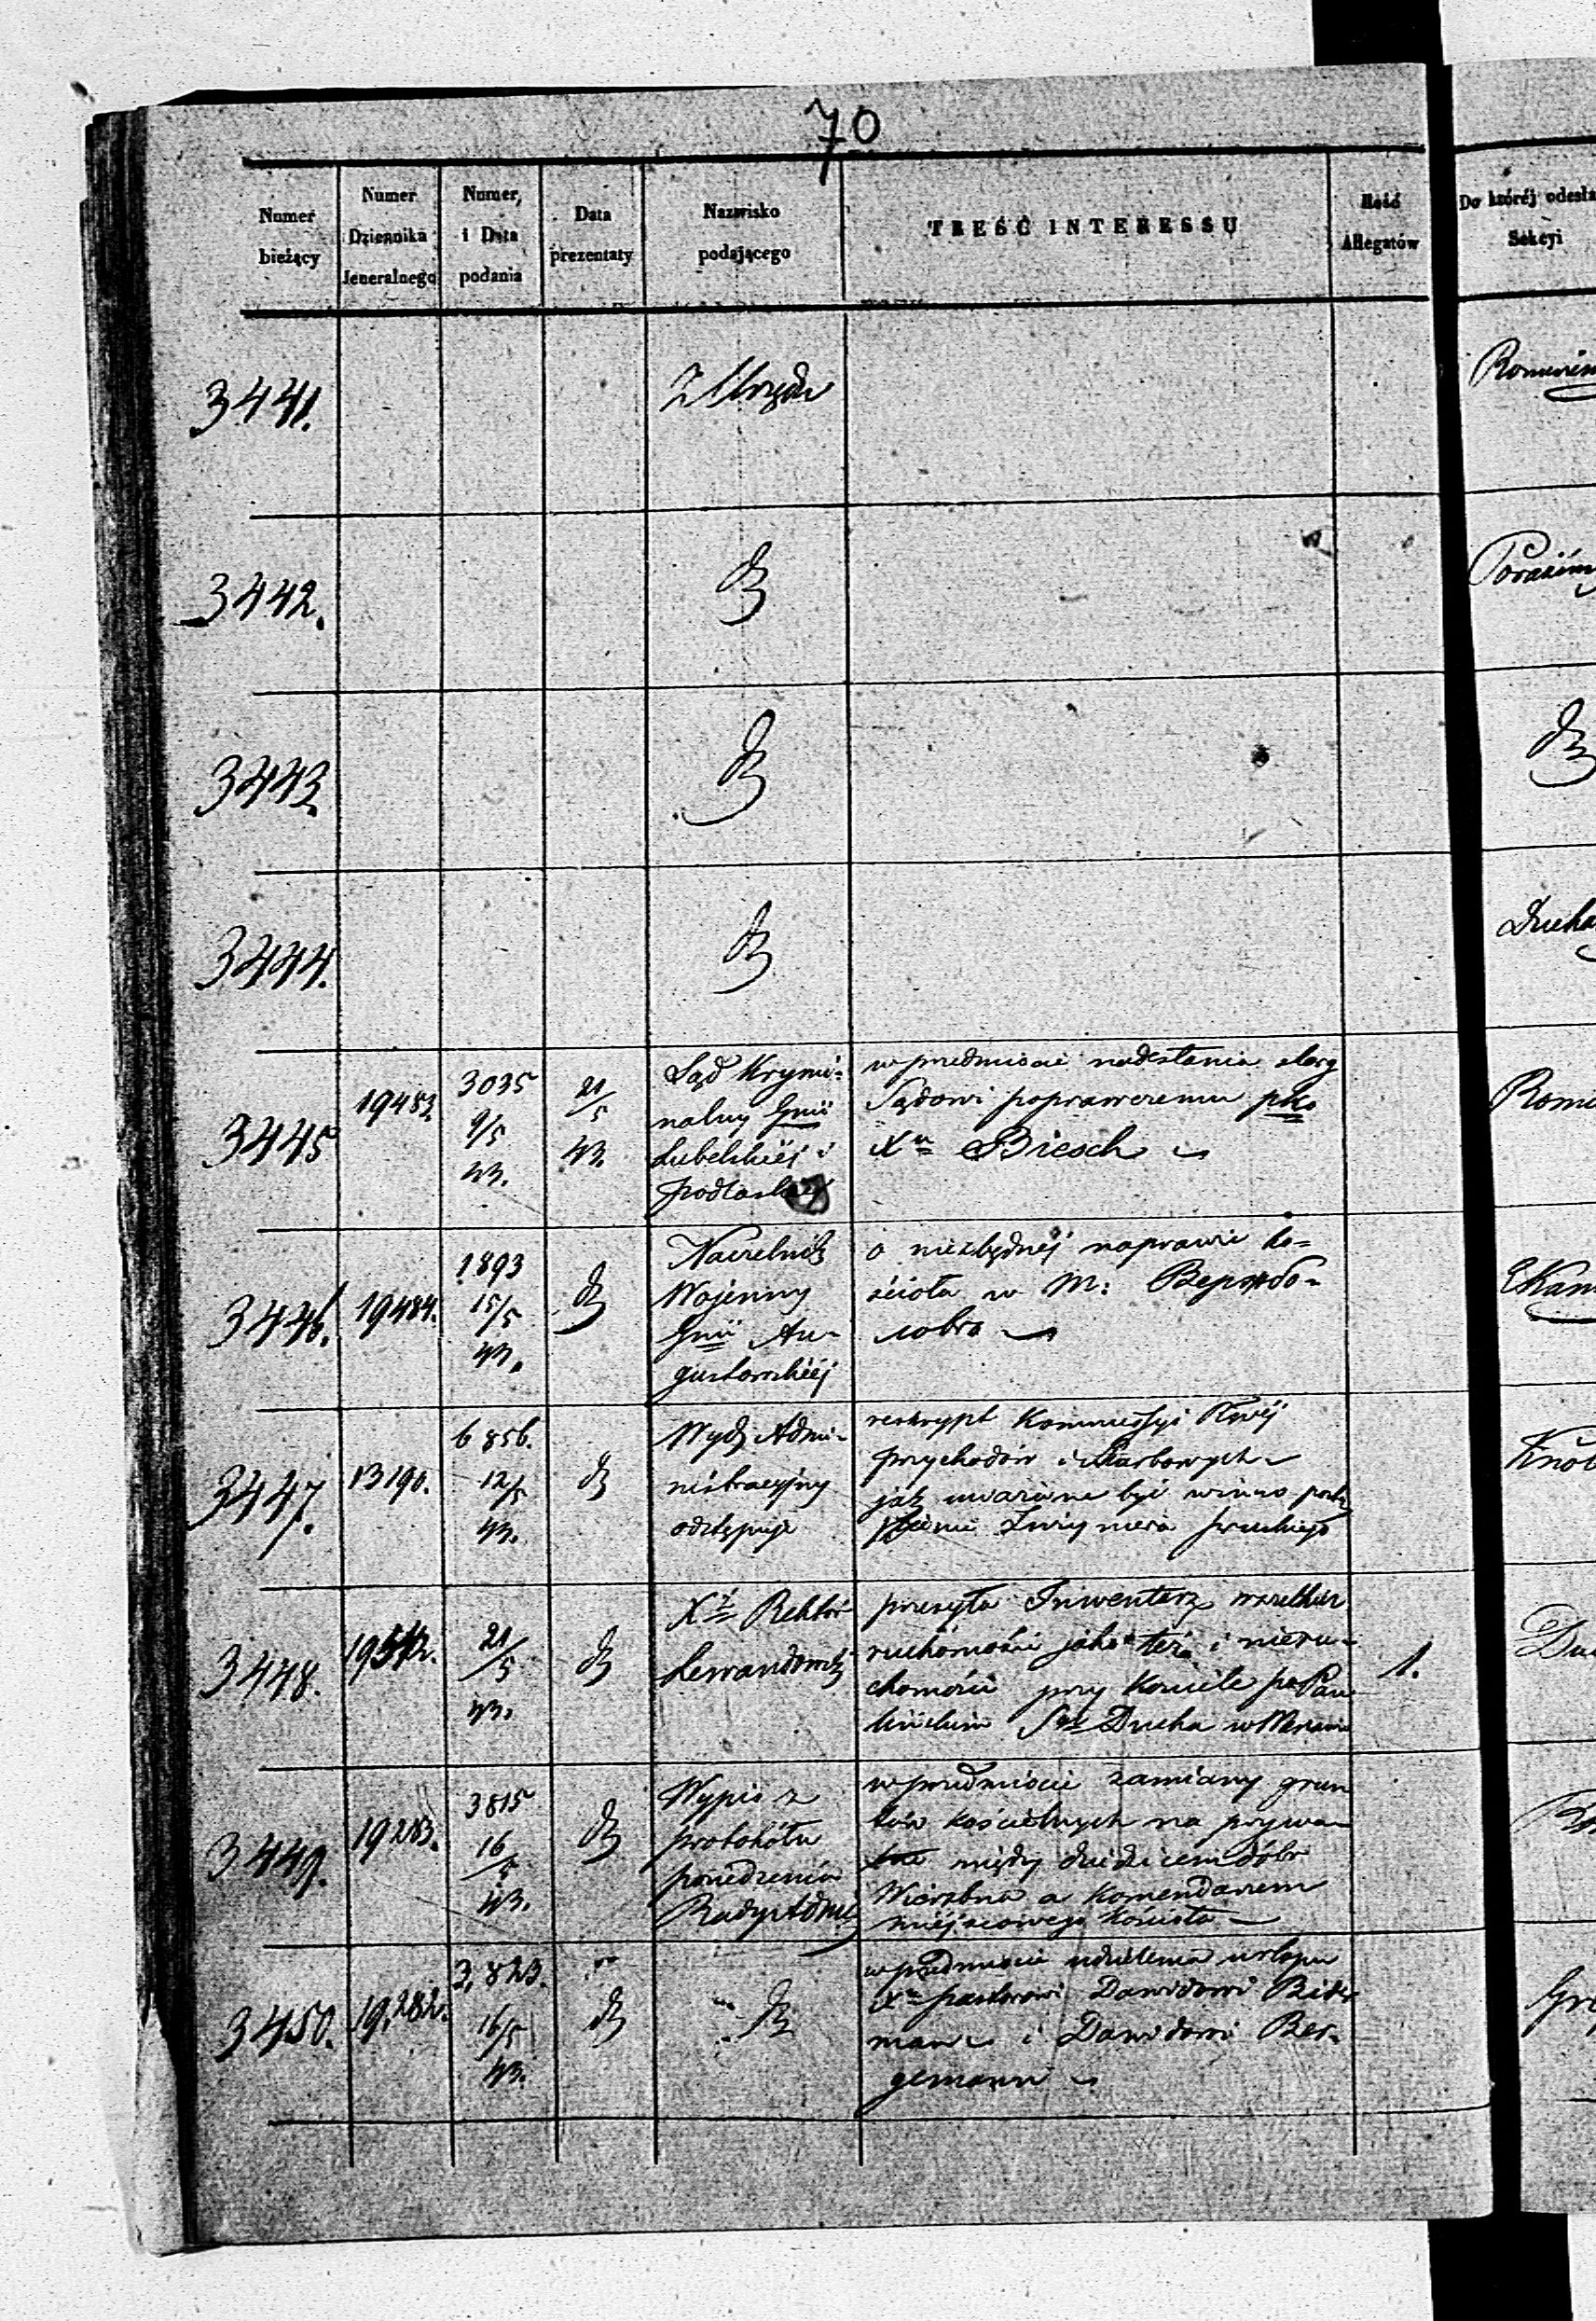 70
Numer bieżący
Numer Dziennika Jeneralnego
Numer, i Data podania
Data prezentaty
Nazwisko podającego
TREŚĆ INTERESSU
Ilość Allegatów
Do któréj odesła
Sekcyi
3441.
Z Urzędu
3442.
dto
3443.
dto
dto
3444.
dto
Ducha
3445
19482
3035
9/5
43.
21/5
43.
Sąd Krymi-
nalny Gnii
Lubelskiéj i
Podlaskiéj
w przedmiocie nadesłania skarg
Sądowi poprawczemu pko
Xu Biesch
3446.
19484.
1893
15/5
43.
dto
Naczelnik
Wojenny
Gnii Au-
gustowskiéj
o niezbędnéj naprawie ko-
ścioła w M:
3447.
13190.
6856.
12/5
43.
dto
Wydz Admi-
nistracyjny
odstępuje
reskrypt Kommissyi Rząd
Przychodów i Skarbowych
jak uważane być winno
3448.
21/5
43.
dto
Xdz Rektor
Lewandowski
przesyła Inwentarz wszelkich
ruchomości jako też i nieru-
chomości przy Kościele po Pau
lińskim Sgo Ducha w Warszawie
1.
3449.
19283.
3815
16/5
43.
dto
Wypis z
protokółu
posiedzenia
Rady Admnéj
w przedmiocie zamiany grun
tów kościelnych na prywa-
tne między dziedzicem dóbr
Wierzbna a Komendarzem
miéjscowego Kościoła
3450.
19,282.
3,823.
16/5
43.
dto
dto
w przedmiocie udzielenia urlopu
Xm pastorom Dawidowi
mann i Dawidowi Ber-
gemann